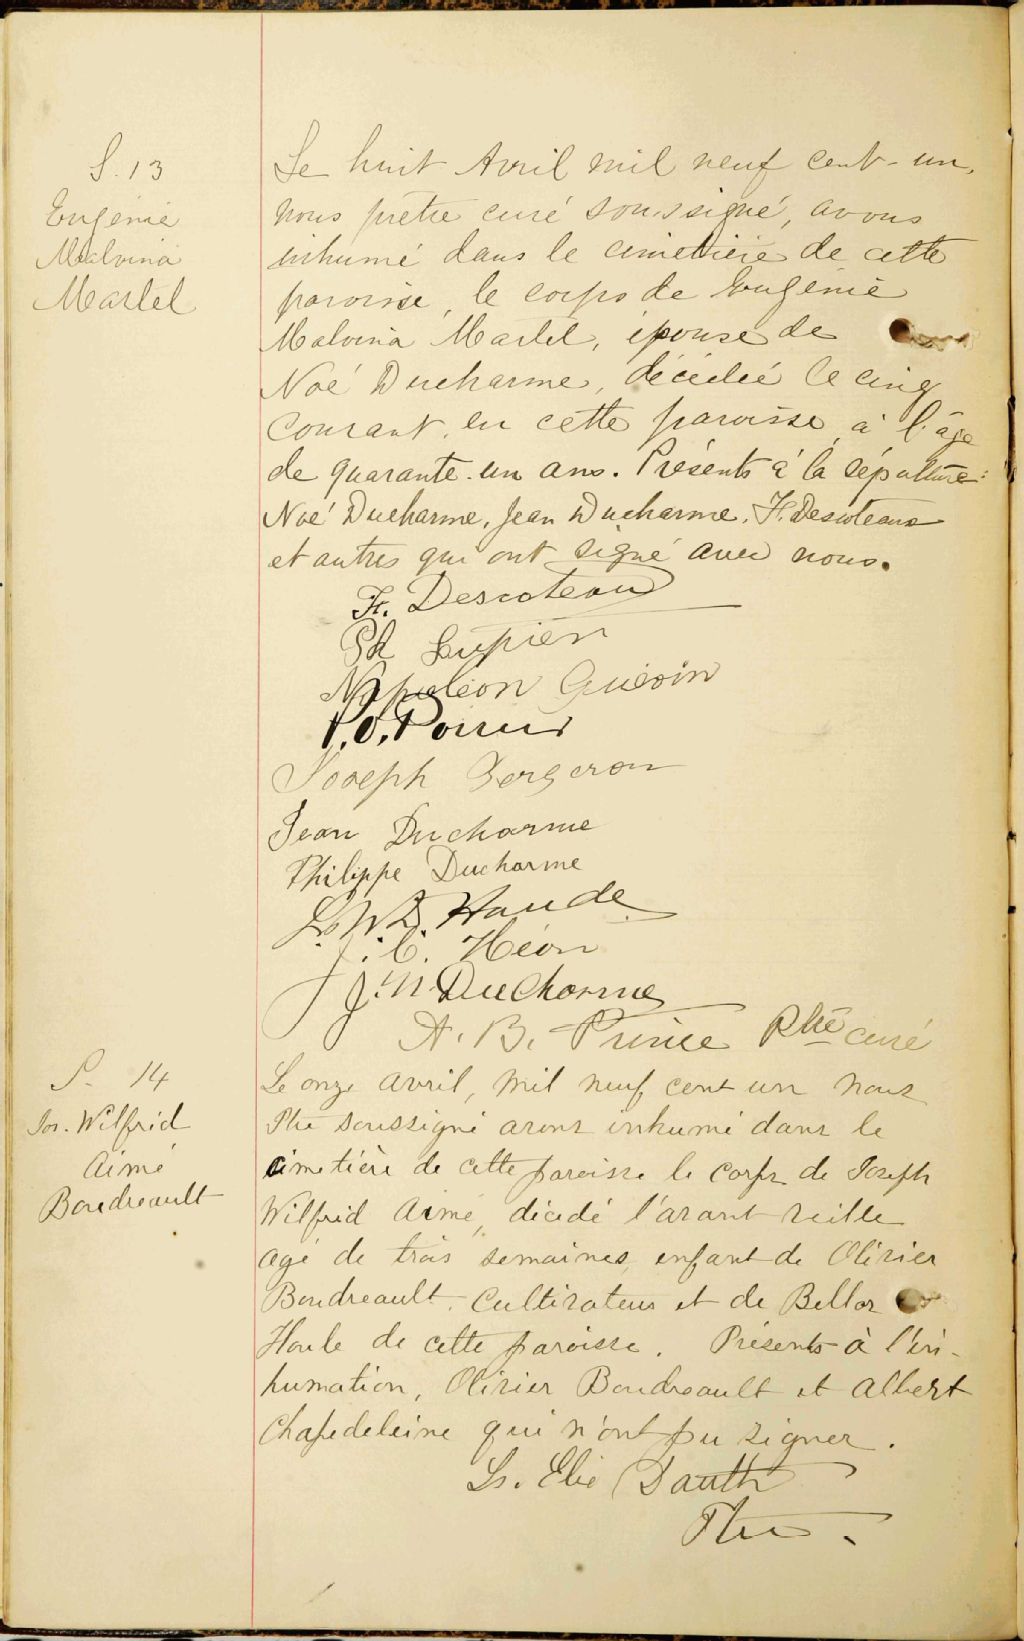 S. 13
Eugénie
Malvina
Martel
Le huit Avril mil neuf cent-un,
nous prêtre curé soussigné, avons
inhumé dans le cimetière de cette
paroisse, le corps de Eugénie
Malvina Martel, épouse de
Noé Ducharme, décédée le cinq
courant, en cette paroisse, à l'âge
de quarante-un ans. Présents à la sépulture:
Noé Ducharme, Jean Ducharme, H. Descoteaux
et autres qui ont signé avec nous.
H. Descoteaux
Ph Lupien
Napoléon Guévin
P.O. Poirier
Joseph Bergeron
Jean Ducharme
Philippe Ducharme
Ls W D Houde
J. C. Héon
J. N. DuCharme
A. B. Prince Ptre curé
S. 14
Jos. Wilfrid
Aimé
Boudreault
Le onze avril, mil neuf cent un nous
Ptre soussigné avons inhumé dans le
cimetière de cette paroisse le corps de Joseph
Wilfrid Aimé, décédé l'avant veille
agé de trois semaines, enfant de Olivier
Boudreault, cultivateur et de
Houle de cette paroisse. Présents à l'in-
humation, Olivier Boudreault et Albert
Chapedeleine qui n'ont pu signer.
Ls. Elie Dauth
Ptre